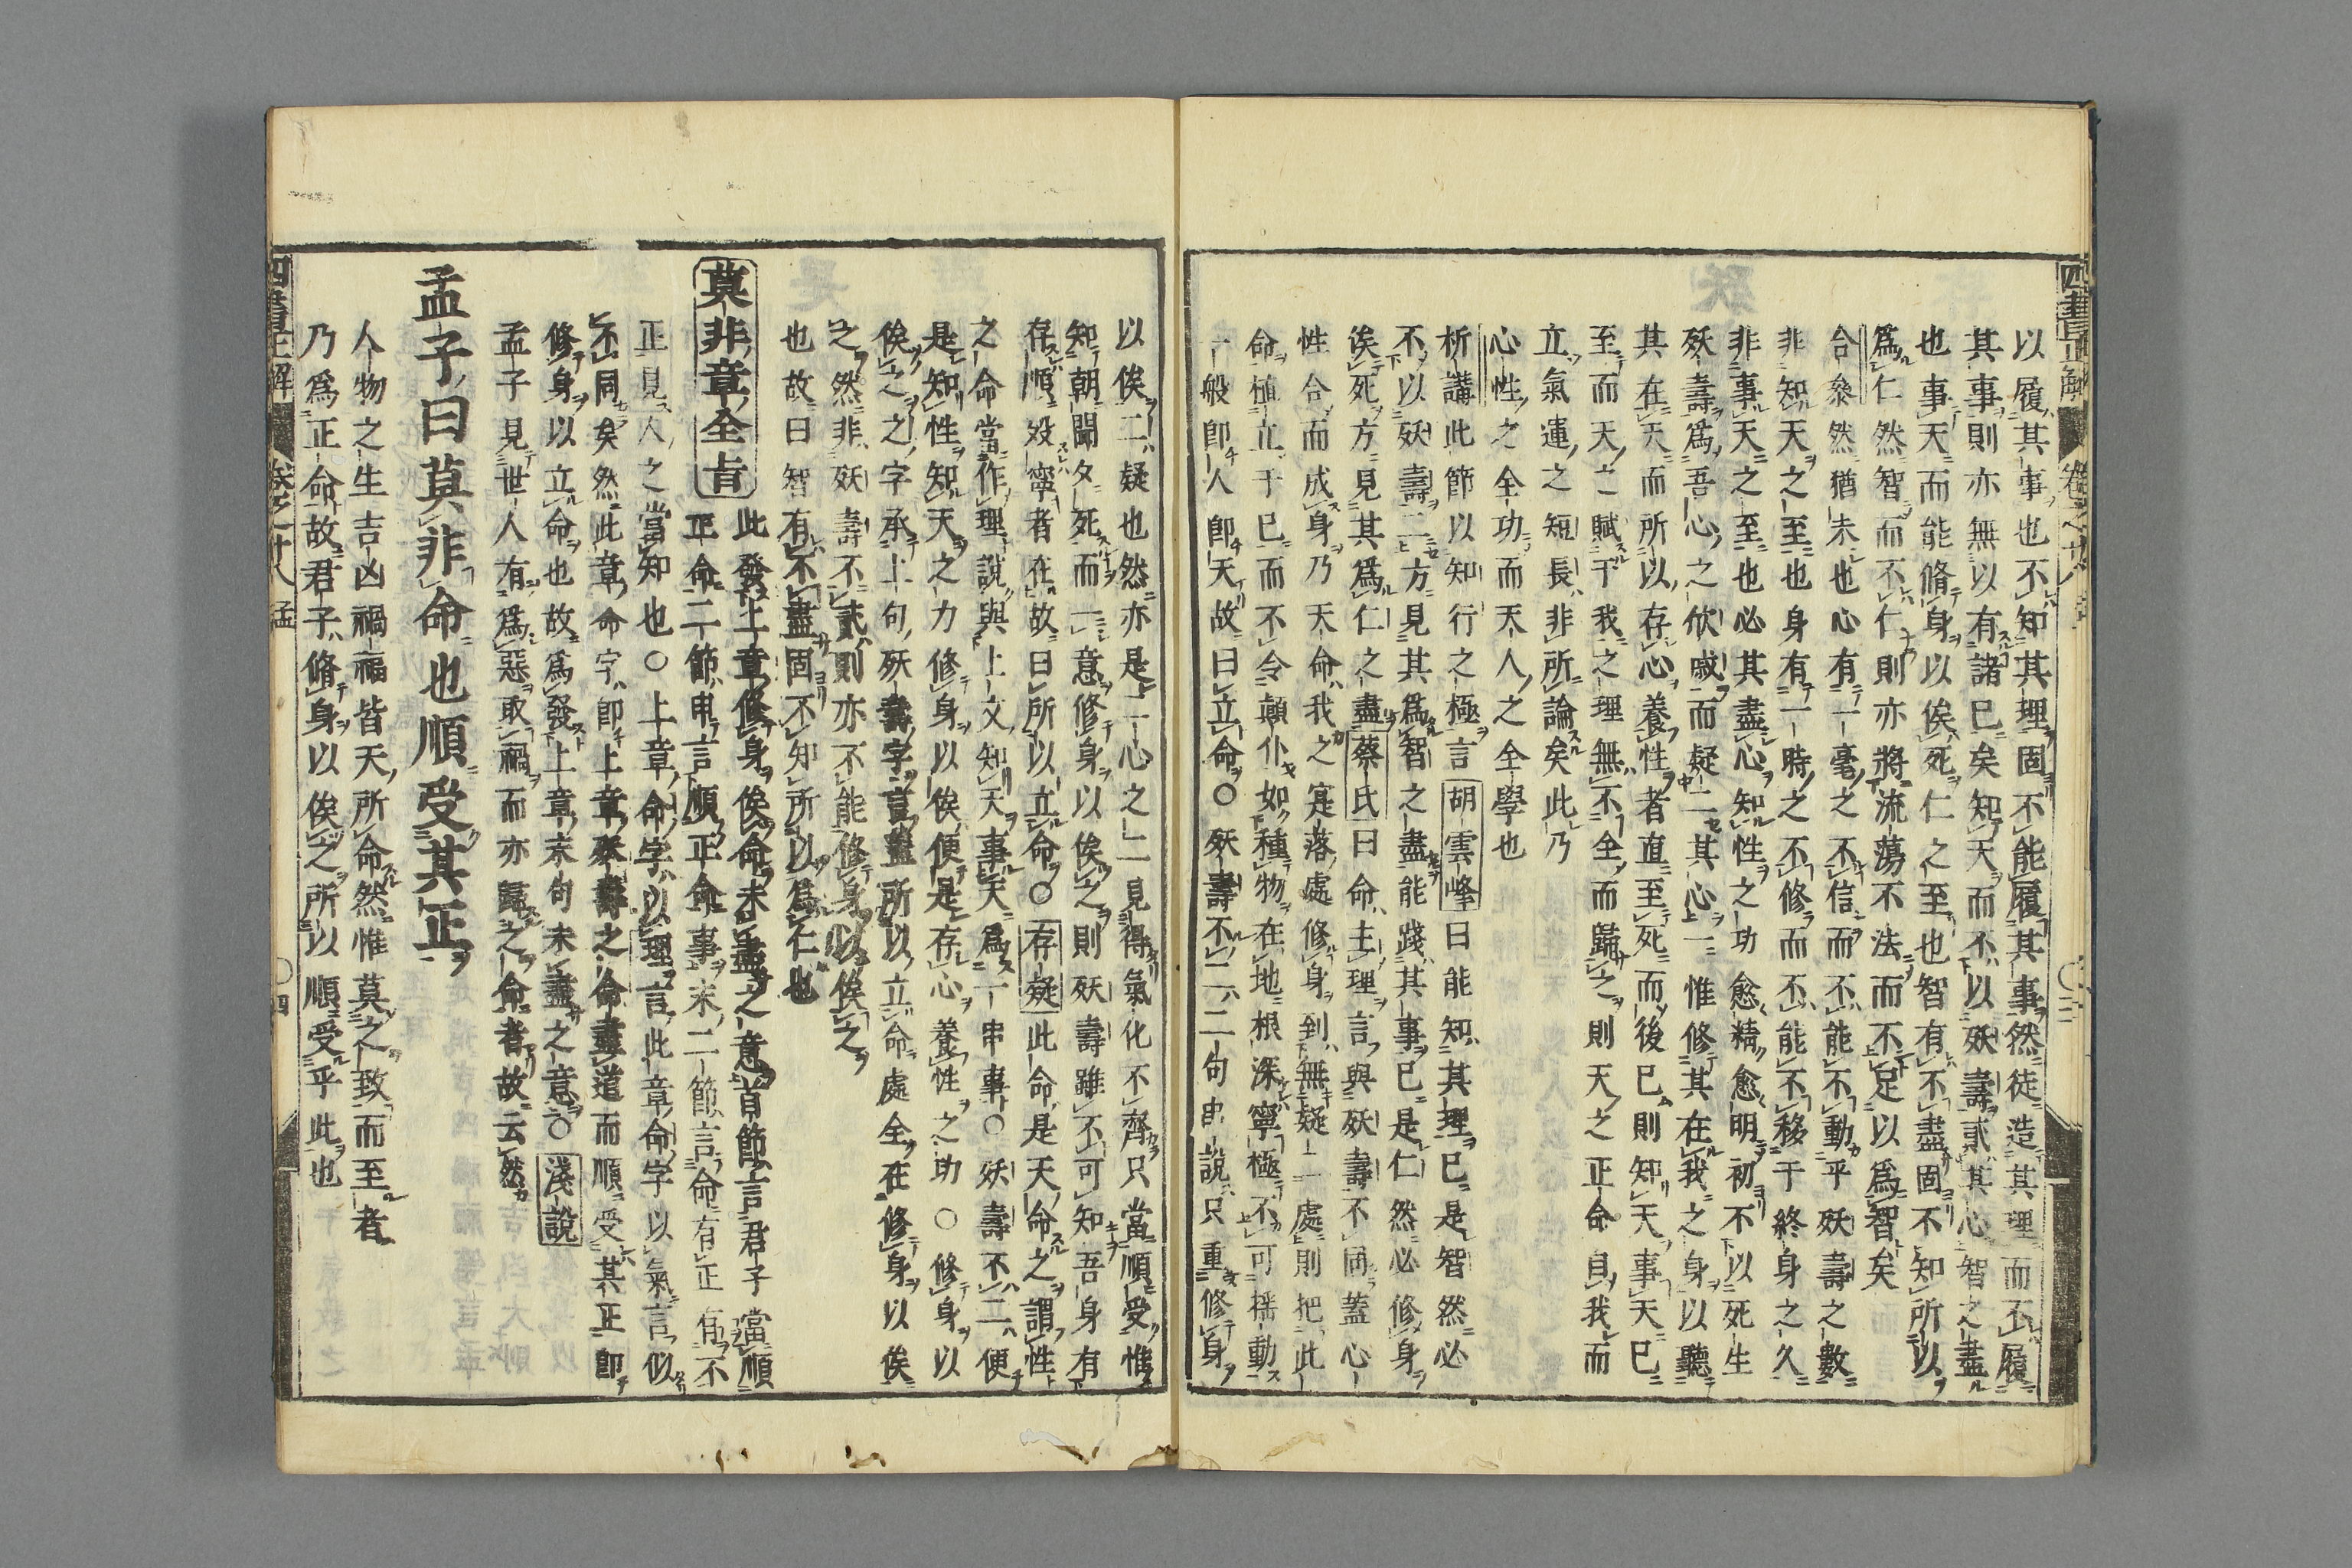 以履其事也不知其理固不能履其事然徒造其理而不履
其事則亦無以有諸己矣知天而不以殀壽貳其心智之盡
也事天而能脩身以俟死仁之至也智有不盡固不知所以
爲仁然智而不仁則亦將流蕩不法而不足以爲智矣
合叅然猶未也心有一毫之不信而不能不動乎殀壽之數
非知天之至也身有一時之不修而不能不移于終身之久
非事天之至也必其盡心知性之功愈精愈明初不以死生
殀壽爲吾心之欣戚而疑二其心一惟修其在我之身以聽
其在天而所以存心養性者直至死而後已則知天事天已
至而天之賦于我之理無不全而歸之則天之正命自我而
立氣運之短長非所論矣此乃
心性之全功而天人之全學也
析講此節以知行之極言胡雲峰曰能知其理已是智然必
不以殀壽二方見其爲智之盡能踐其事已是仁然必修身
俟死方見其爲仁之盡蔡氏曰命主理言與殀壽不同蓋心
性合而成身乃天命我之寔落處修身到無疑一處則把此
命植立于已而不令顛仆如種物在地根深寧極不可搖動
一般卽人卽天故曰立命○殀壽不二二句串說只重修身
以俟二疑也然亦是一心之二見得氣化不齊只當順受惟
知朝聞夕死而一意修身以俟之則殀壽雖不可知吾身有
存順歿寧者在故曰所以立命○存疑此命是天命之謂性
之命當作理說與上文知天事天爲一串事○殀壽不二便
是知性知天之力修身以俟便是存心養性之功○修身以
俟之之字承上句殀壽字言蓋所以立命處全在修身以俟
之然非殀壽不貳則亦不能修身以俟之
也故曰智有不盡固不知所以爲仁也
莫非章全旨此發上章修身俟命未盡之意首節言君子當順
正命二節申言順正命事末二節言命有正有不
正見人之當知也○上章命字以理言此章命字以氣言似
不同矣然此章命字卽上章殀壽之命盡道而順受其正卽
修身以立命也故爲發上章末句未盡之意○淺說
孟子見世人有爲惡取禍而亦歸之命者故云然
孟子曰莫非命也順受其正
人物之生吉凶禍福皆天所命然惟莫之致而至者
乃爲正命故君子脩身以俟之所以順受乎此也